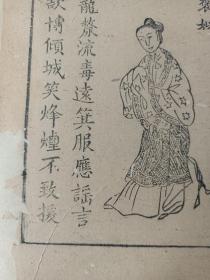 褒姒
龍漦流毒遠箕服應謡言
欲博傾城笑烽煌不致援